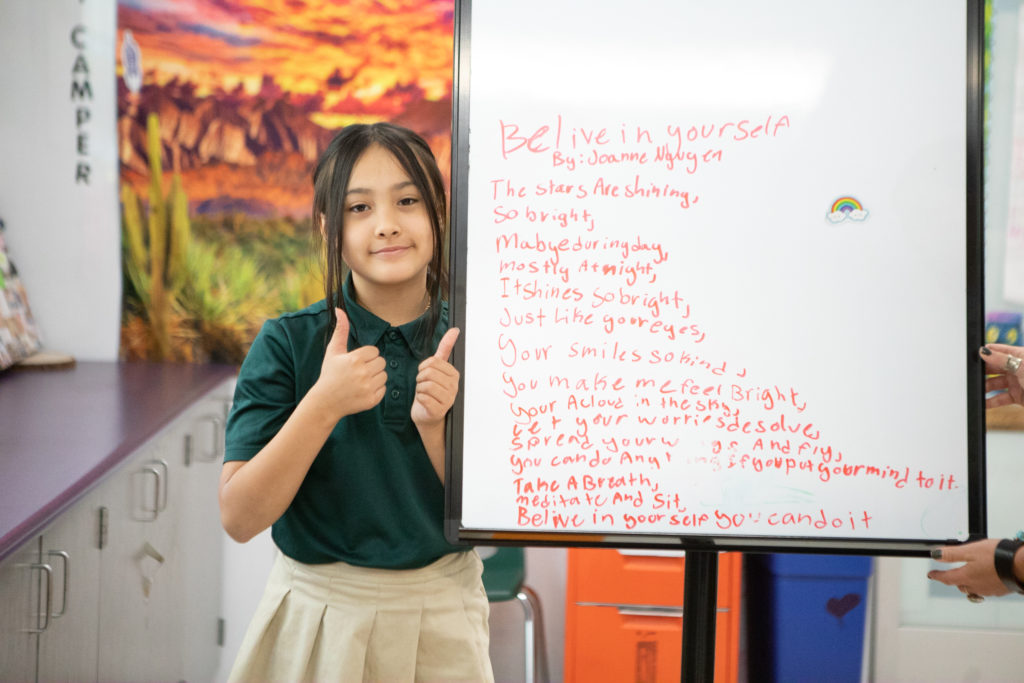 CAMPER
Belive in yourself
By: Joanne Nguyen
The stars Are shining,
So bright,
Mabye during day,
mostly At night,
It shines so bright,
Just like your eyes,
Your smiles so kind,
You make me feel Bright,
Your A cloud in the sky,
Let your worries desolve,
Spread your And fly,
You can do if you put your mind to it.
Take A Breath,
meditate And Sit,
Belive in your self you can do it